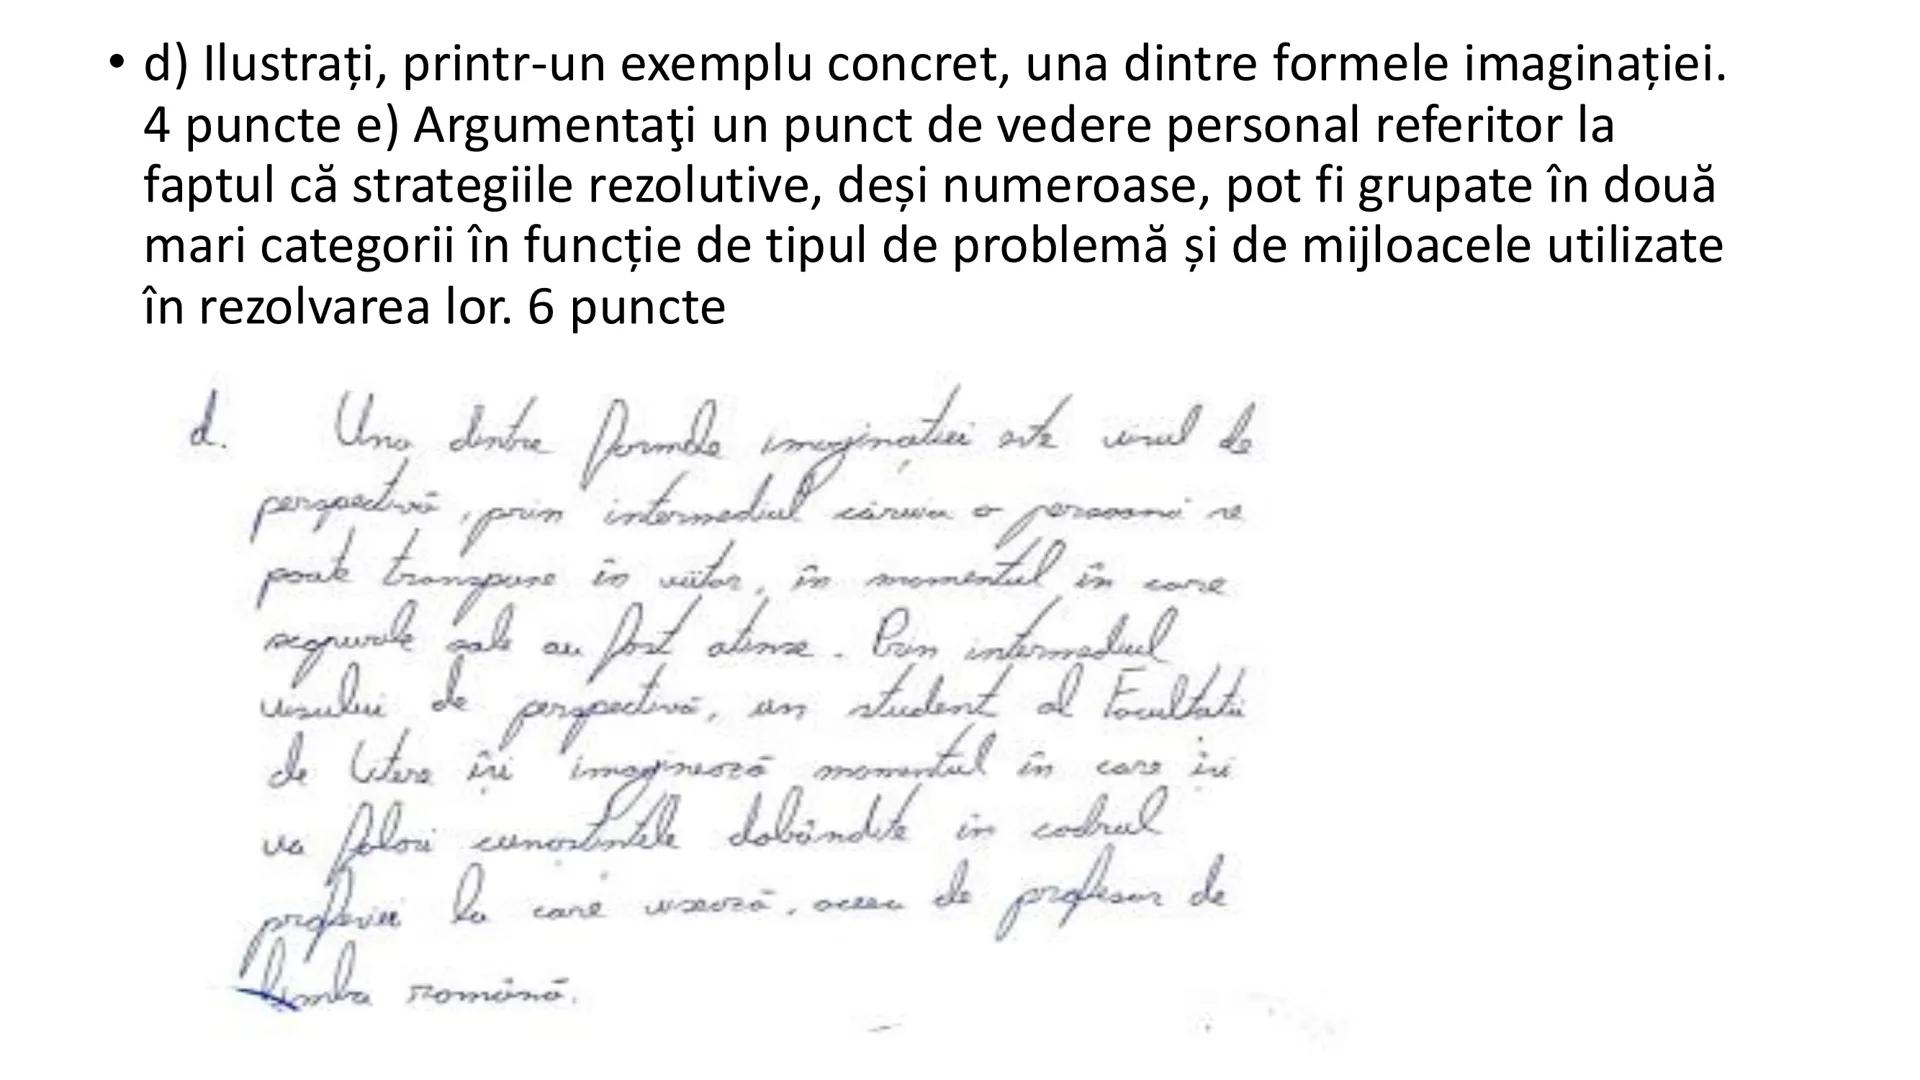 • d) Ilustrați, printr-un exemplu concret, una dintre formele imaginației.
4 puncte e) Argumentaţi un punct de vedere personal referitor la
faptul că strategiile rezolutive, deși numeroase, pot fi grupate în două
mari categorii în funcție de tipul de problemă și de mijloacele utilizate
în rezolvarea lor. 6 puncte
d. Una dintre formele imaginației este visul de
perspectivă, prin intermediul căruia o persoană se
poate transpune în viitor, în momentul în care
scopurile sale au fost atinse. Prin intermediul
visului de perspectivă, un student al Facultății
de Litere își imaginează momentul în care își
va folosi cunoștințele dobândite în cadrul
profesiei la care visează, aceea de profesor de
limba română.